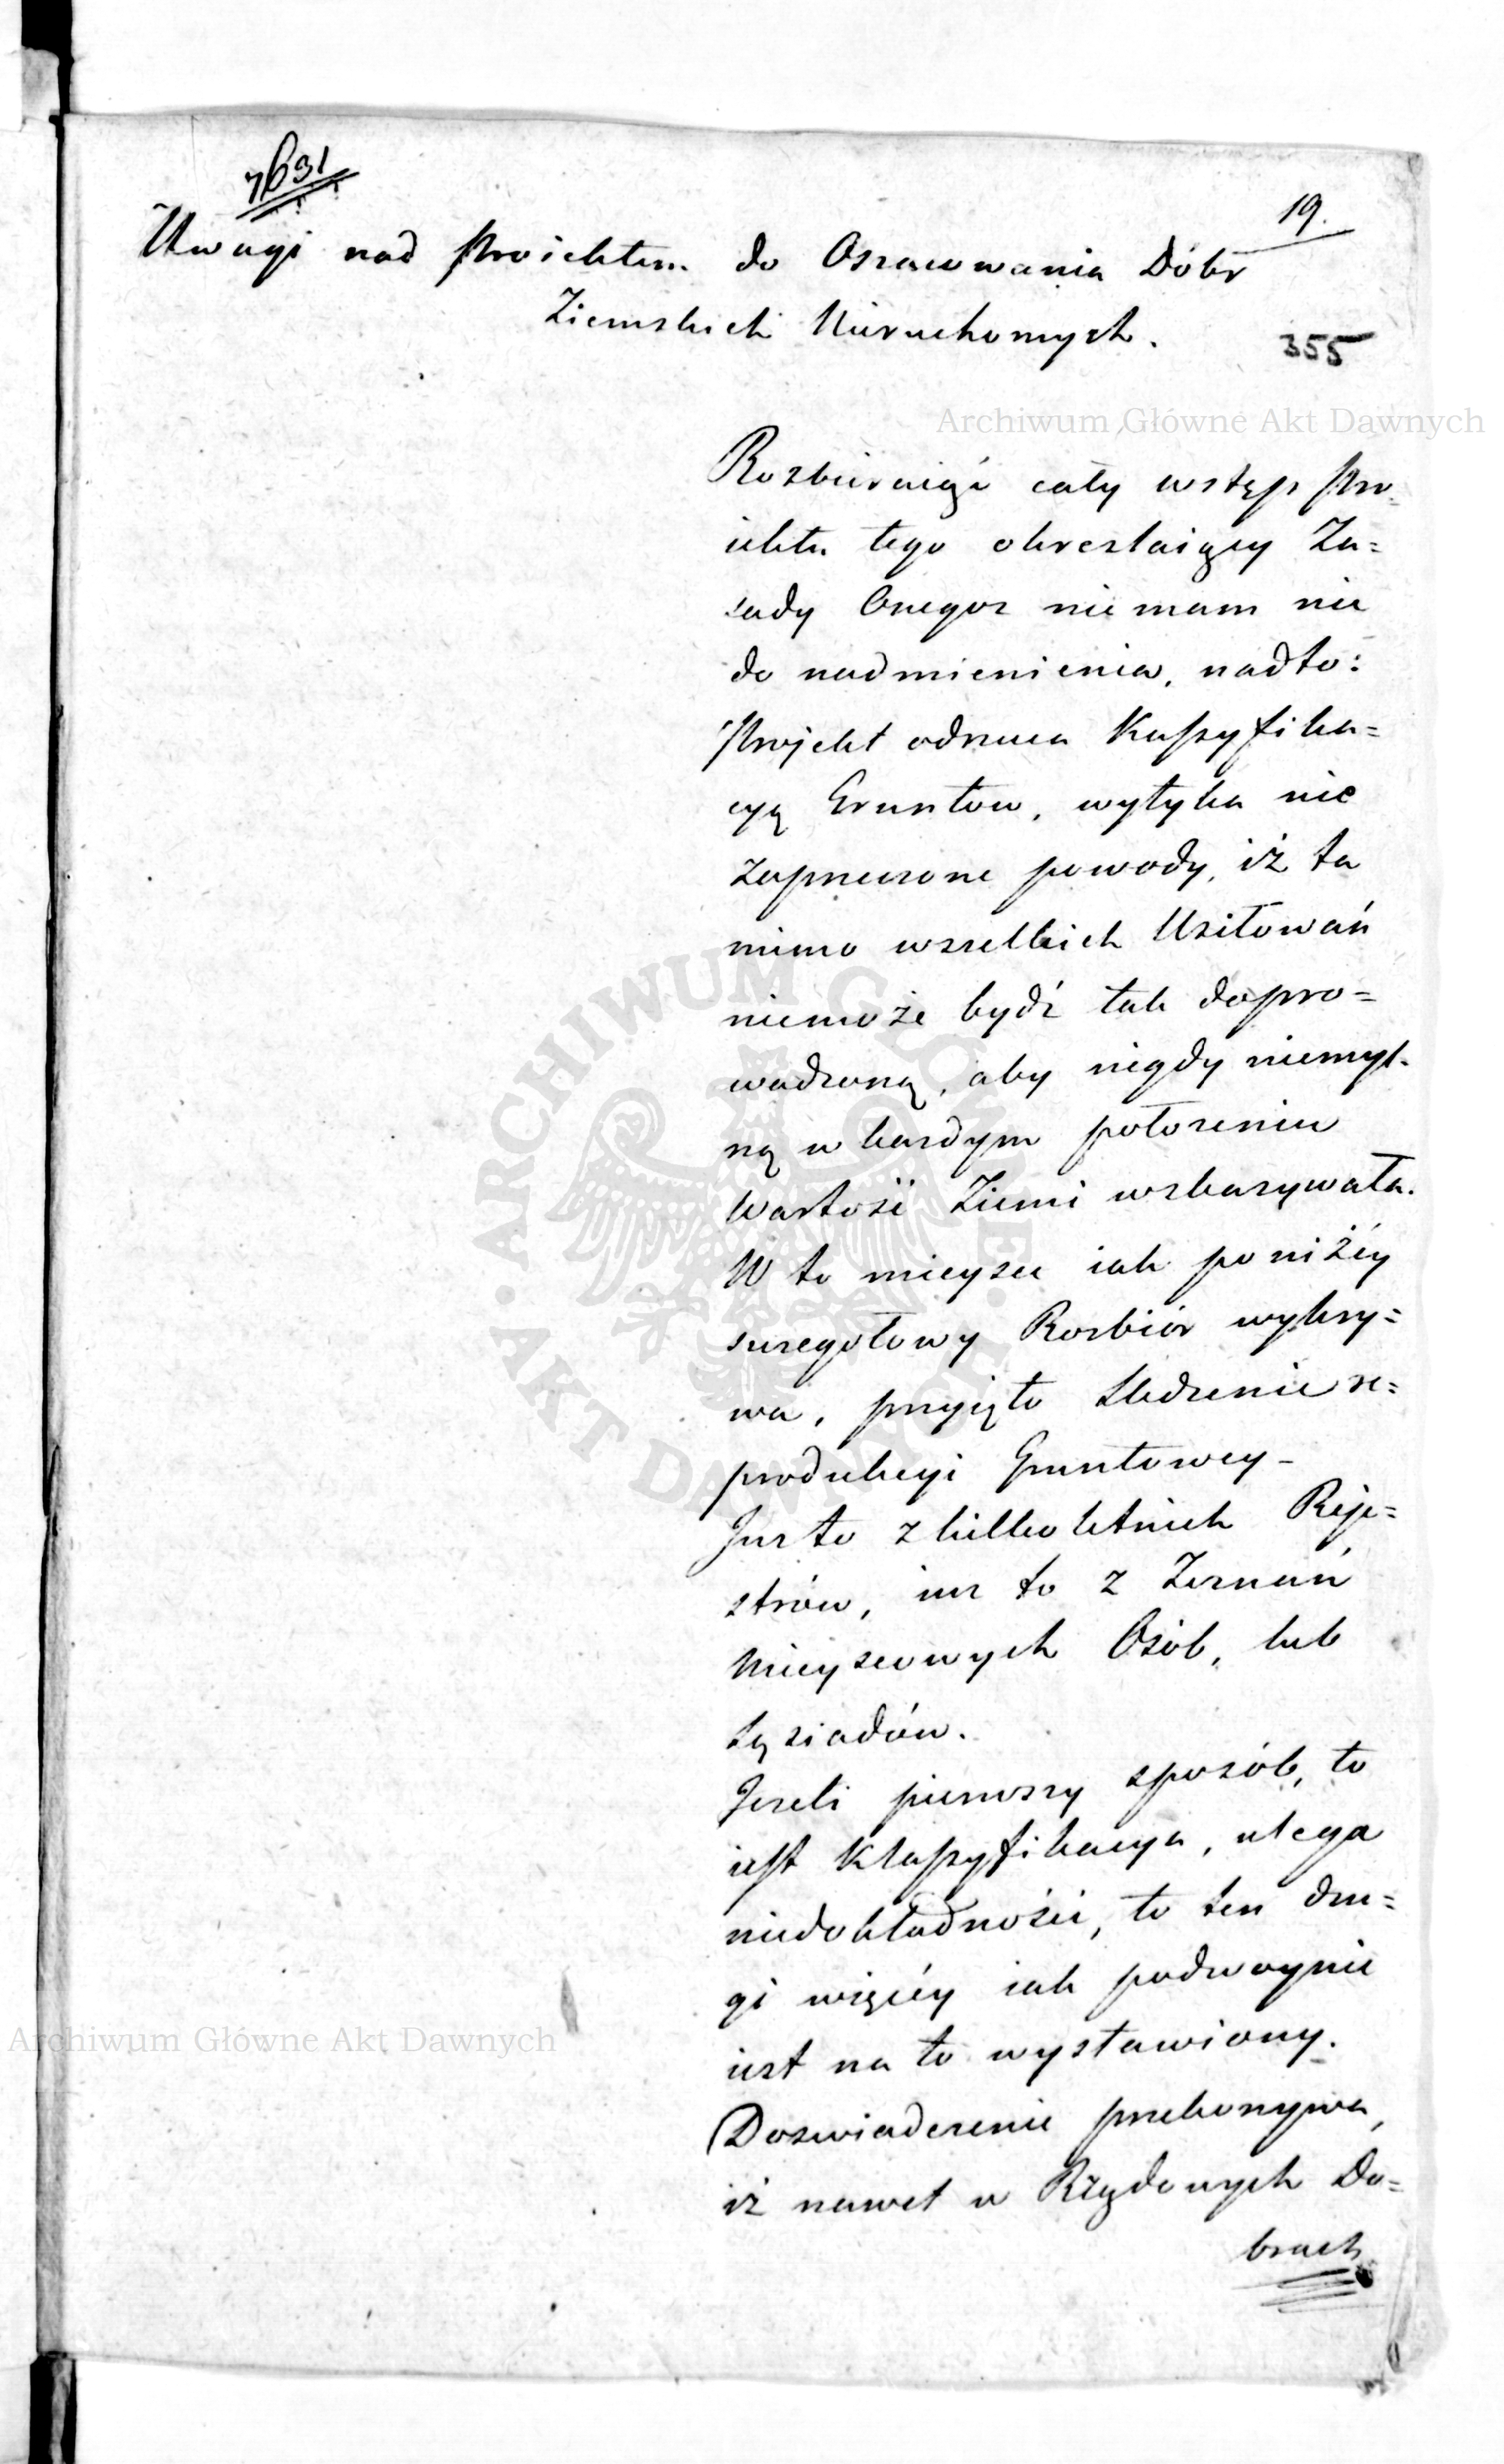 7631
19.
Uwagi nad Proiektem do Oszacowania Dóbr
Ziemskich Nieruchomych.
355
Archiwum Główne Akt Dawnych
Rozbieraiąc cały wstęp Pro=
iektu tego okreslaiący Za=
sady Onegoz nie mam nic
do nadmienienia, nadto:
Projekt odrzuca Klassyfika=
cyą Gruntow, wytyka nie
zaprzeczone powody, iż ta
mimo wszelkich Usiłowań
niemoże bydź tak dopro=
wadzoną, aby nigdy niemyl=
ną w kazdym położeniu
Wartość Ziemi wskazywała.
W to mieysce iak poniżéy
szczegołowy Rozbiór wykry=
wa, przyięto śledzenie re=
produkcyi Gruntowey –
Juz to z kilkoletnich Reje=
strów, iuz to z Zeznań
Mieyscowych Osób, lub
Sąsiadów.
Jezeli pierwszy sposób, to
iest Klassyfikacya, ulega
niedokładności, to ten dru=
gi więcéy iak podwoynie
iest na to wystawiony.
Doswiadczenie przekonywa,
iż nawet w Rządowych Do=
brach
ARCHIWUM GŁÓWNE AKT DAWNYCH
Archiwum Główne Akt Dawnych